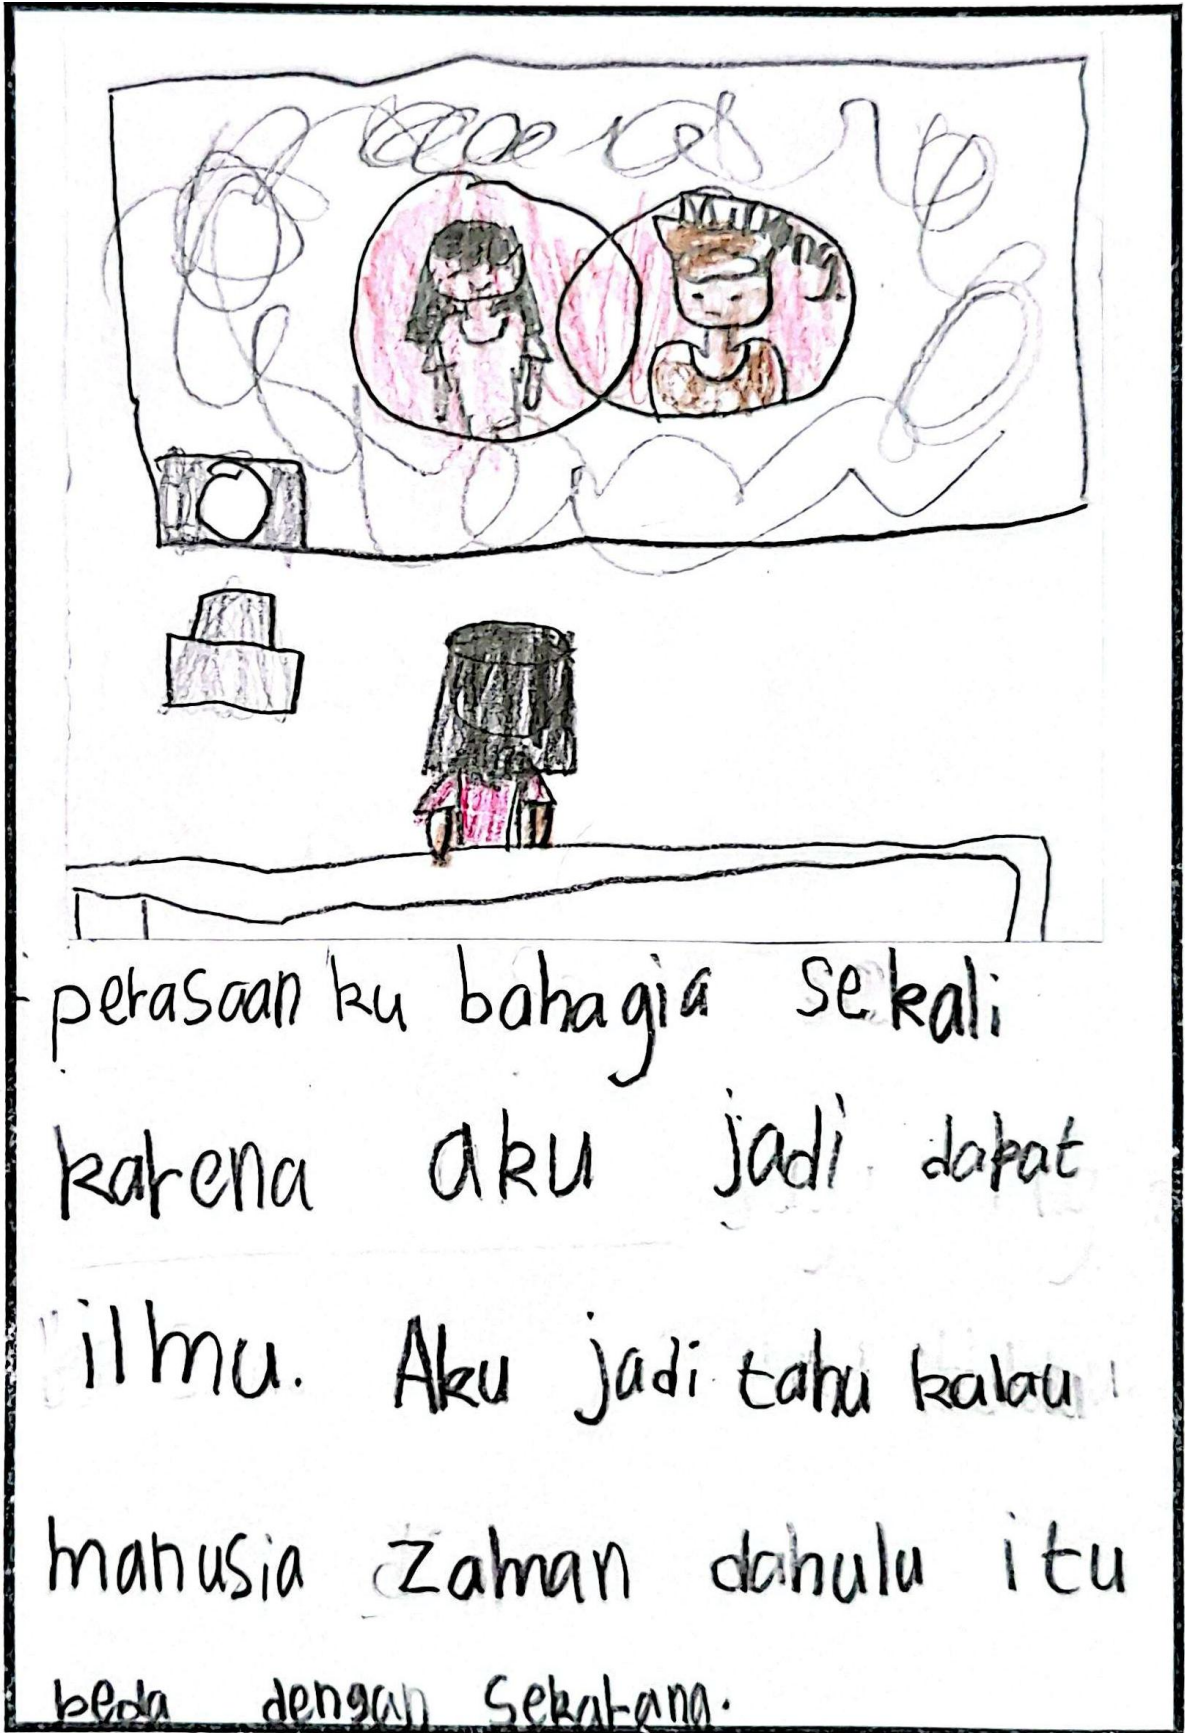 perasaan ku bahagia sekali
karena aku jadi dapat
ilmu. Aku jadi tahu kalau
manusia zaman dahulu itu
beda dengan sekarang.